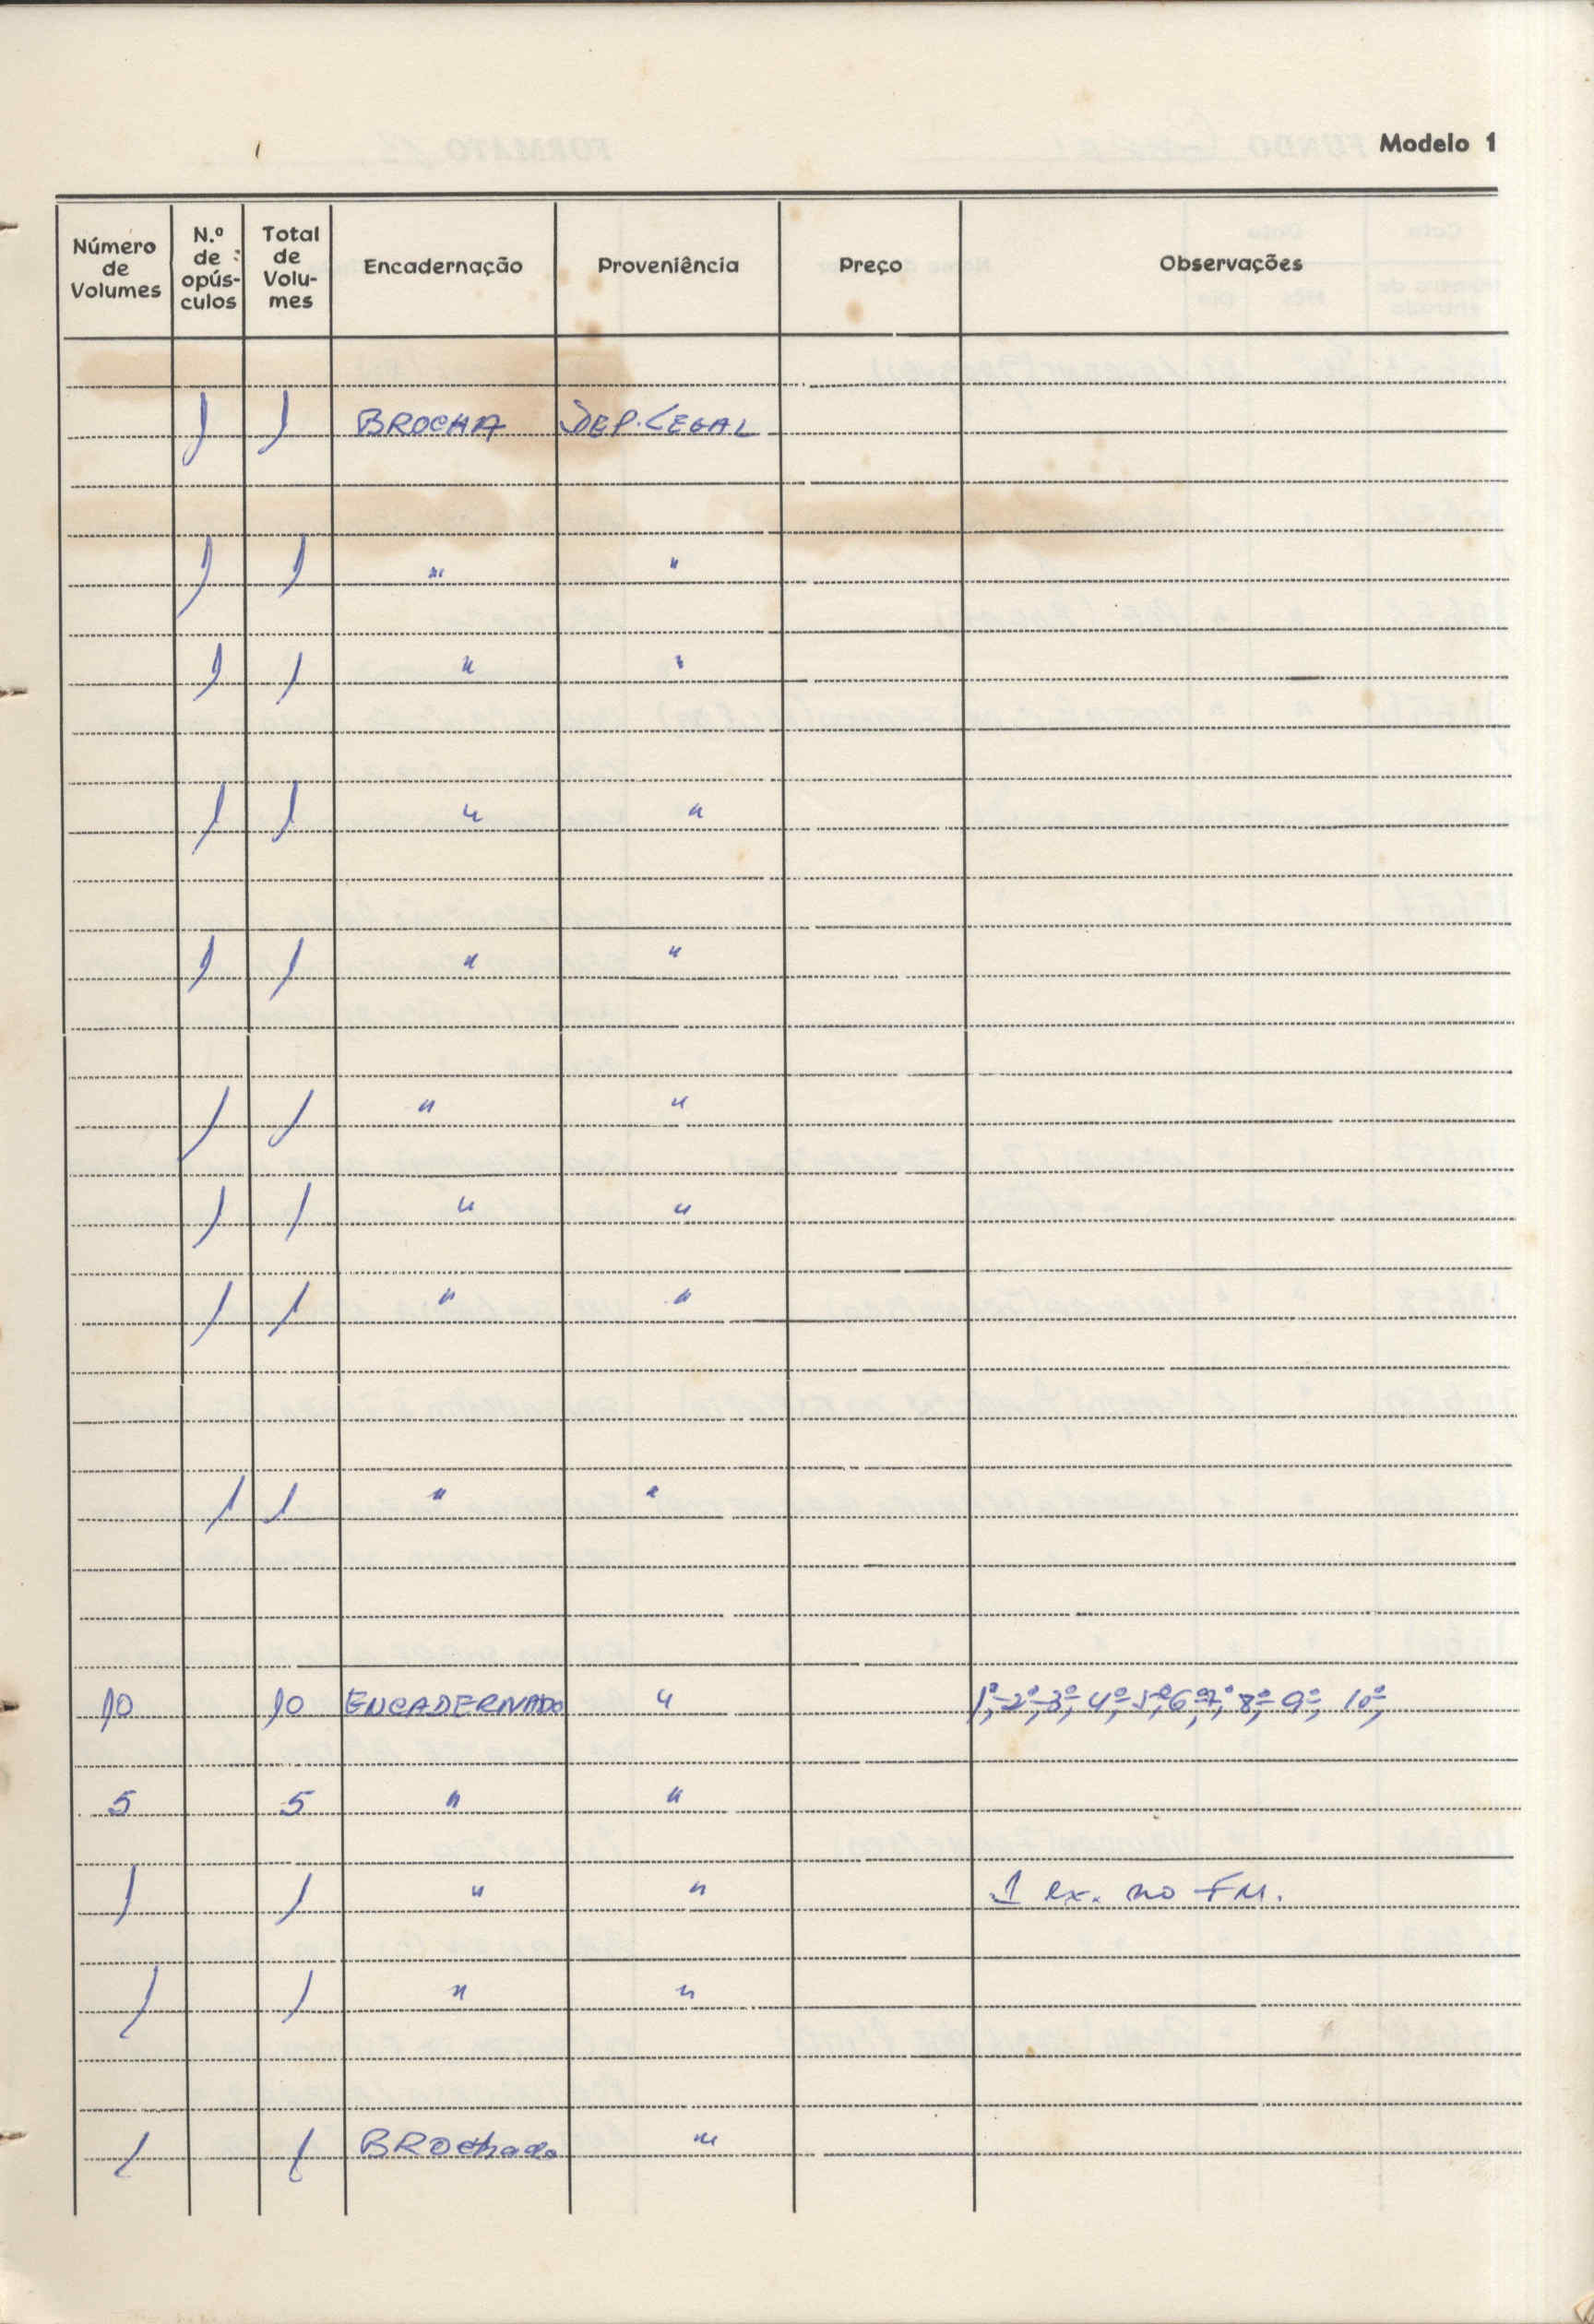 Modelo 1
Número de Volumes | N.º de opús-culos | Total de Volu-mes | Encadernação | Proveniência | Preço | Observações
1 1 BROCHA DEP. LEGAL
1 1 " "
1 1 " "
1 1 " "
1 1 " "
1 1 " "
1 1 " "
1 1 " "
1 1 " "
10 10 ENCADERNADO " 1º, 2º, 3º, 4º, 5º, 6º, 7º, 8º, 9º, 10º,
5 5 " "
1 1 " " 1 ex. no FM.
1 1 " "
1 1 BROchado "